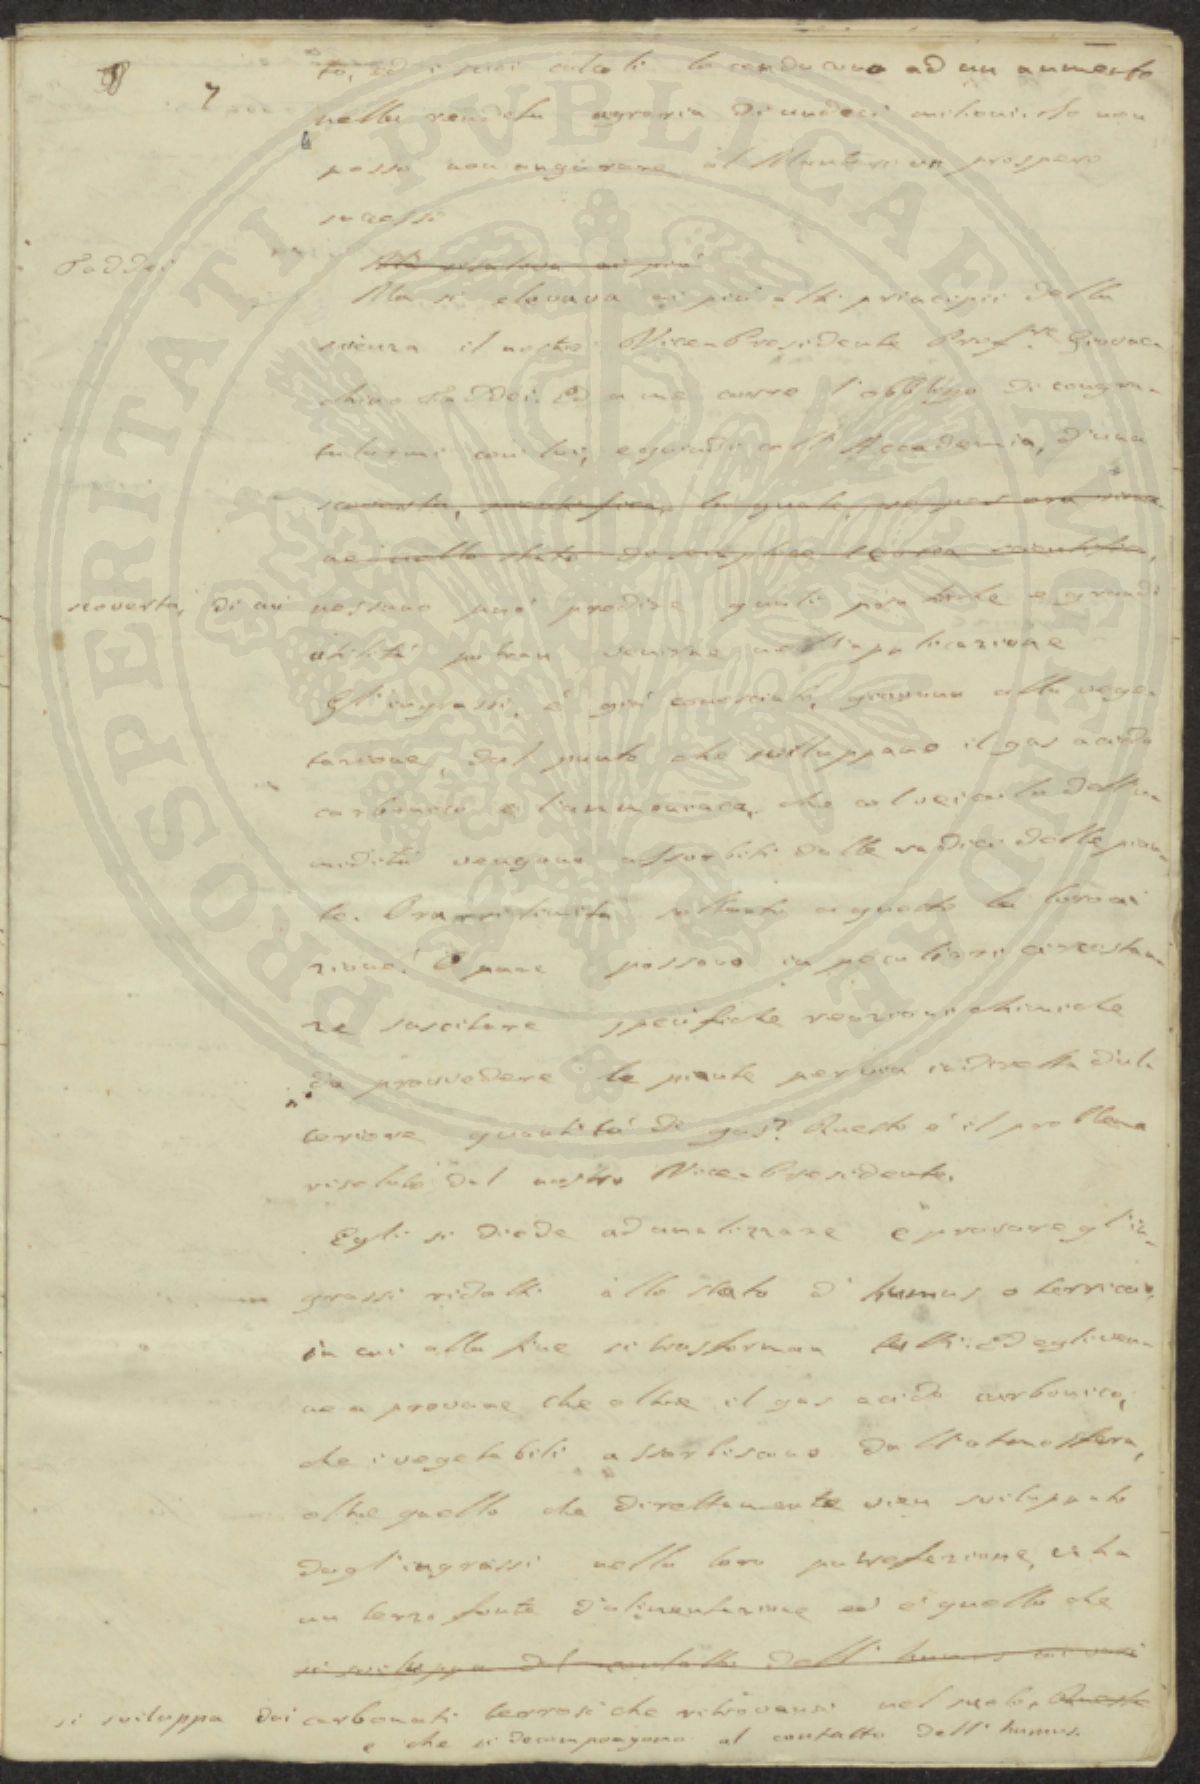 7
to, ed i suoi calcoli lo conducono ad un aumento
nella rendita agraria di undeci milioni. Io non
posso non augurare al Manteri un prospero
successo
Taddei
Ma si elevava ai più alti principii della
scienza il nostro Vice-Presidente Prof.re Giovac-
chino Taddei. Ed a me corre l'obbligo di congra-
tularmi con lui, e quindi coll'Accademia, d'una
scoverta, scientifica, la quale, se per ora rima
ne nello stato di semplice teoria scientifica,
scoverta, di cui nessuno può predire quali più belle e grandi
utilità potran venirne nell'applicazione
Gl'ingrassi, è già conosciuto, giovano alla vege-
tazione, dal punto che sviluppano il gas acido
carbonico e l'ammoniaca, che col veicolo dell'u-
midità vengono assorbiti dalle radici delle pian-
te. Ora si limita soltanto a questo la loro a-
zione? O pure possono in peculiari circostan-
ze suscitare specifiche reazioni chimiche
da provvedere le piante per via indiretta d'ul-
teriore quantità di gas? Questo è il problema
risoluto dal nostro Vice-Presidente.
Egli si diede ad analizzare e provare gl'in-
grassi ridotti allo stato d'humus o terriccio,
in cui alla fine si trasforman tutti. Ed egli ven-
ne a provare che oltre il gas acido carbonico,
che i vegetabili assorbiscono dall'atmosfera,
oltre quello che direttamente vien sviluppato
dagl'ingrassi nella loro putrefazione, vi ha
un terzo fonte d'alimentazione ed è quello che
si sviluppa dal contatto dell'humus coi vari
si sviluppa dai carbonati terrosi che ritrovansi nel suolo, Queste
e che si decompongono al contatto dell'humus.
PROSPERITATI PVBLICAE AVGENDAE